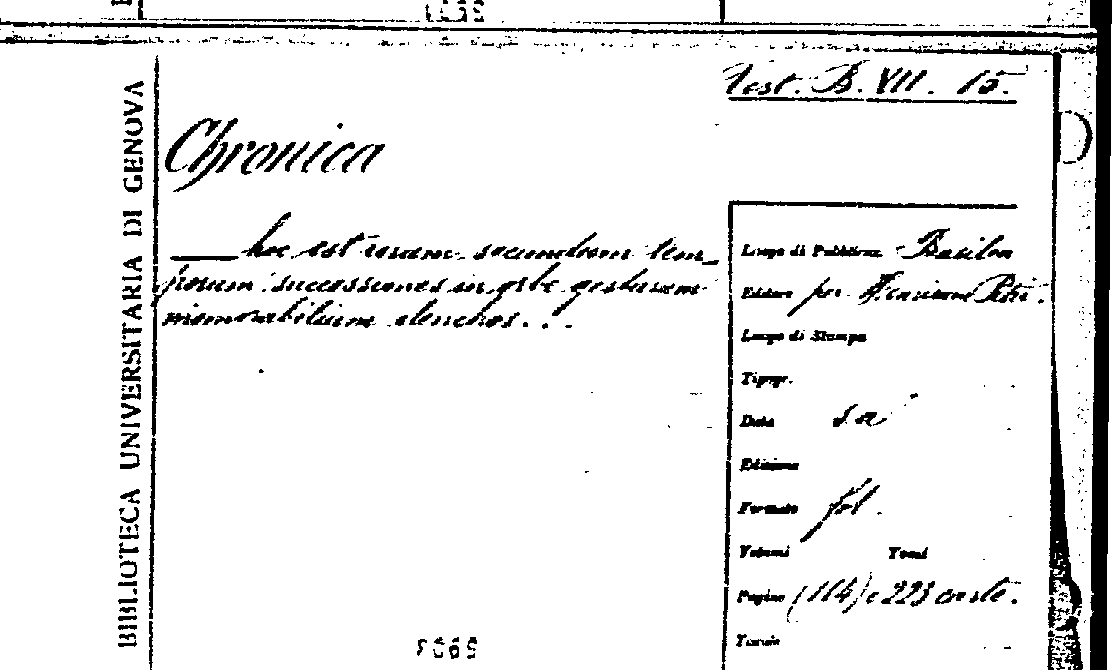 BIBLIOTECA UNIVERSITARIA DI GENOVA
Test. B. VII. 15.
Chronica
hoc est rerum secundum tem-
porum successiones in orbe gestarum
memorabilium elenchos...
Luogo di Pubblicaz. Basilea
Editore per Henricum Petri.
Luogo di Stampa
Tipogr.
Data s.a.
Edizione
Formato fol.
Volumi Tomi
Pagine (114) e 223 carte.
Tavole